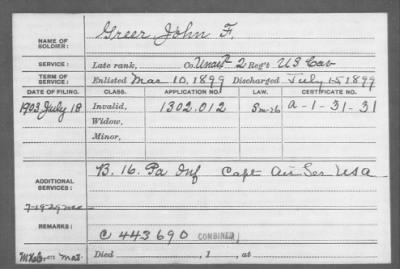 NAME OF SOLDIER: Greer, John F.
SERVICE: Late rank, Co. Unas'd 2 Reg't US Cav
TERM OF SERVICE: Enlisted Mar 10, 1899 Discharged July 15, 1899
DATE OF FILING. CLASS. APPLICATION NO. LAW. CERTIFICATE NO.
1903 July 18 Invalid, 1302.012 a-1-31-31
Widow,
Minor,
ADDITIONAL SERVICES: B. 16. Pa Inf Capt Air Ser USA
REMARKS: C 443690 COMBINED
Died , 1 , at